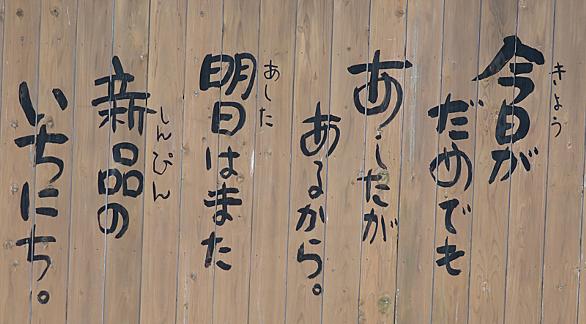 今日が
きょう
だめでも
あしたが
あるから。
明日はまた
あした
新品の
しんぴん
いちにち。